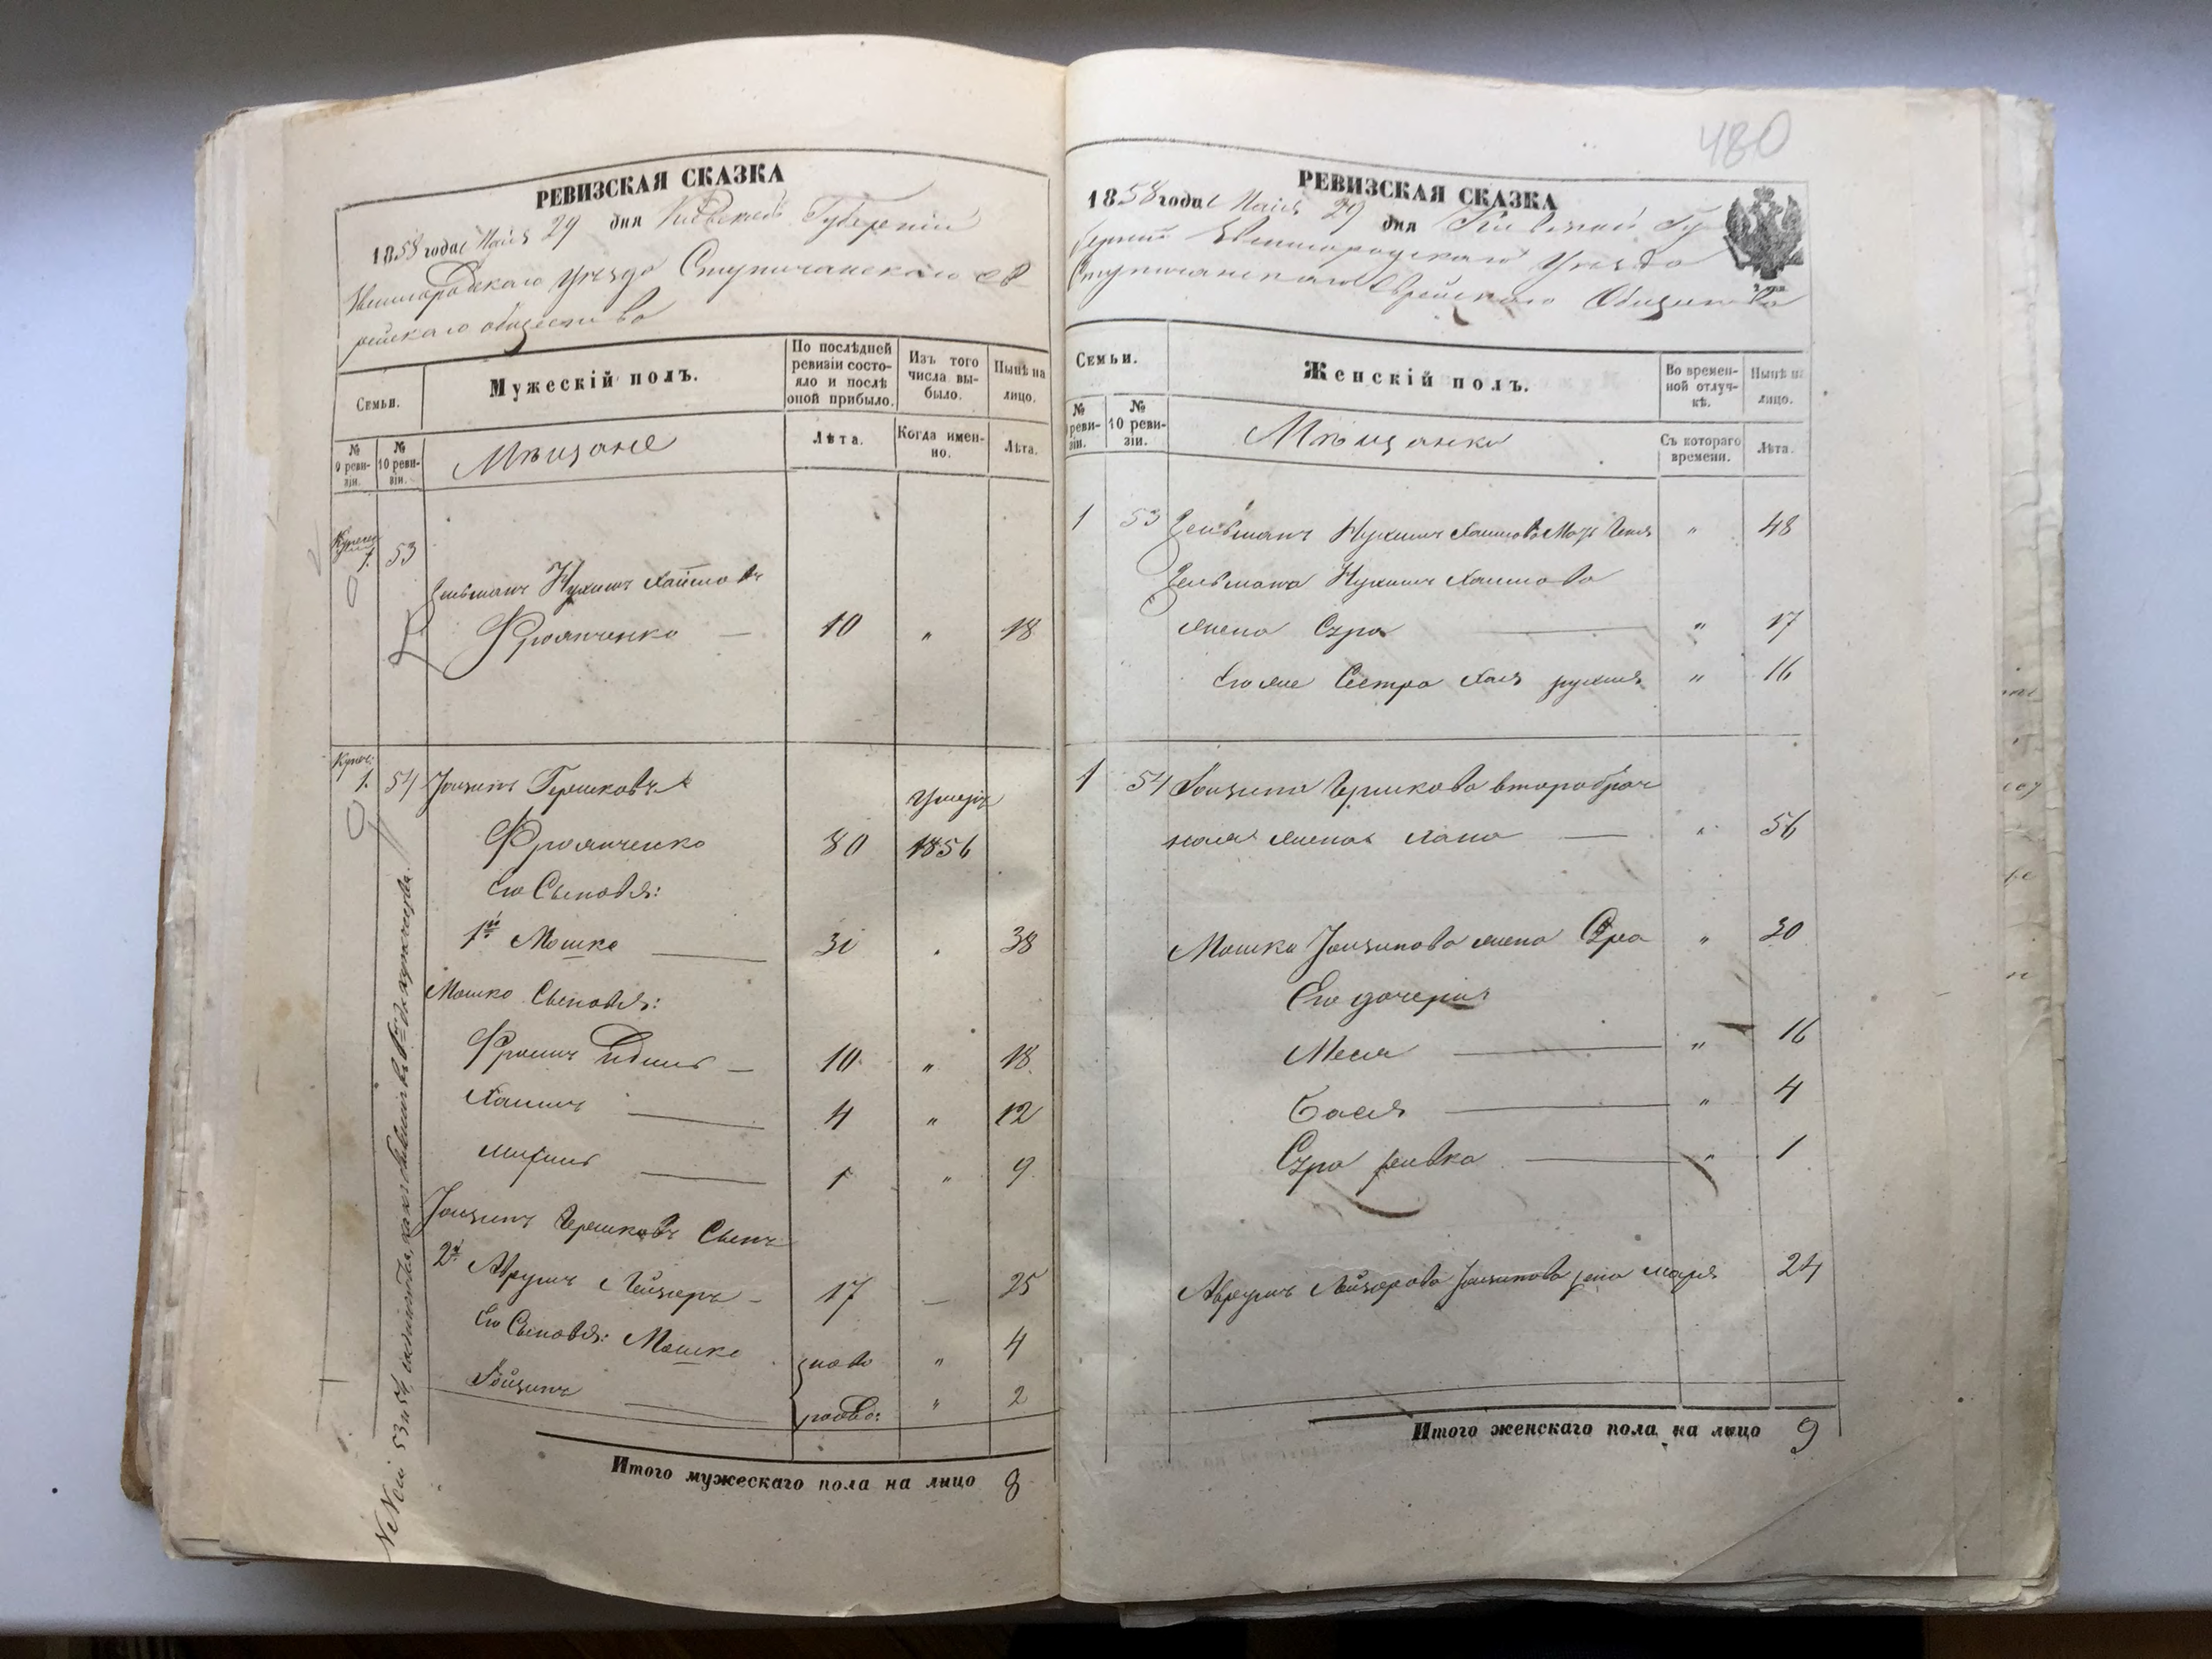 РЕВИЗСКАЯ СКАЗКА
1858 года Маія 29 дня Кіевской Губерніи
Звенигородскаго Уѣзда Ступичанскаго Ев
рейскаго общества
Семьи.
Мужескій полъ.
По послѣдней ревизіи состо-
яло и послѣ
оной прибыло.
Изъ того
числа вы-
было.
Нынѣ на
лицо.
№
9 реви-
зіи.
№
10 реви-
зіи.
Мѣщане
Лѣта.
Когда имен-
но.
Лѣта.
1. 53
Зельманъ Нухимъ Хаимовъ
Фроянченко — 10 " 18
Купеч.
1. 54 Іоиципъ Гершковъ
Умеръ
Фроянченко 80 1856
Его Сыновья:
1й Мошко — 30 . 38
Мошко Сыновья:
Фроимъ — 10 " 18
Хаимъ — 4 " 12
— 1 " 9
Іоиципъ Гершковъ Сынъ
2й Аврумъ Лейзеръ — 17 — 25
Его Сыновья: Мошко ново " 4
Іойципъ — рожде: " 2
Итого мужескаго пола на лицо 8
№№ 53 и 54
480
РЕВИЗСКАЯ СКАЗКА
1858 года Маія 29 дня Кіевской Гу
берніи Звенигородскаго Уѣзда
Ступичанскаго Еврейскаго Общества
Семьи.
Женскій полъ.
Во времен-
ной отлуч-
кѣ.
Нынѣ на
лицо.
№
реви-
зіи.
№
10 реви-
зіи.
Мѣщанки
Съ котораго
времени.
Лѣта.
1 53 Зельманъ Нухимъ Хаимова Мать " 48
Зельмана Нухима Хаимова
жена Сура — " 17
Его же Сестра Хая " 16
1 54 Іоиципа Гершкова второбрач
ная жена Хана — " 56
Мошка Іоиципова жена Сура " 30
Его дочери
Меся — " 16
Бася — " 4
Сура ривка — " 1
Аврумъ Лейзерова Іоиципова жена Маря 24
Итого женскаго пола на лицо 9